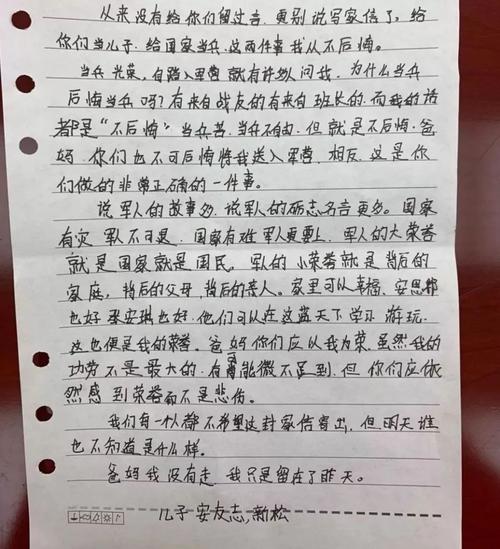 从来没有给你们留过言，更别说写家信了，给
你们当儿子，给国家当兵，这两件事我从不后悔。
当兵光荣，自踏入军营就有许多人问我，为什么当兵
后悔当兵吗？有来自战友的有来自班长的，而我的话
都是“不后悔”当兵苦，当兵不自由，但就是不后悔。爸
妈，你们也不可后悔将我送入军营，相反，这是你
们做的非常正确的一件事。
说军人的故事多，说军人的励志名言更多。国家
有灾军人不可退，国家有难军人更要上，军人的大荣誉
就是国家就是国民，军人的小荣誉就是背后的
家庭，背后的父母，背后的亲人。家里可以幸福，安思
也好 安琪也好，他们可以在这蓝天下学习 游玩，
这也便是我的荣誉。爸妈你们应以我为荣，虽然我的
功劳不是最大的，有可能微不足到，但你们应依
然感到荣誉而不是悲伤。
我们每一个人都不希望这封家信寄出，但明天谁
也不知道是什么样。
爸妈我没有走，我只是留在了昨天。
儿子 安友志，新松